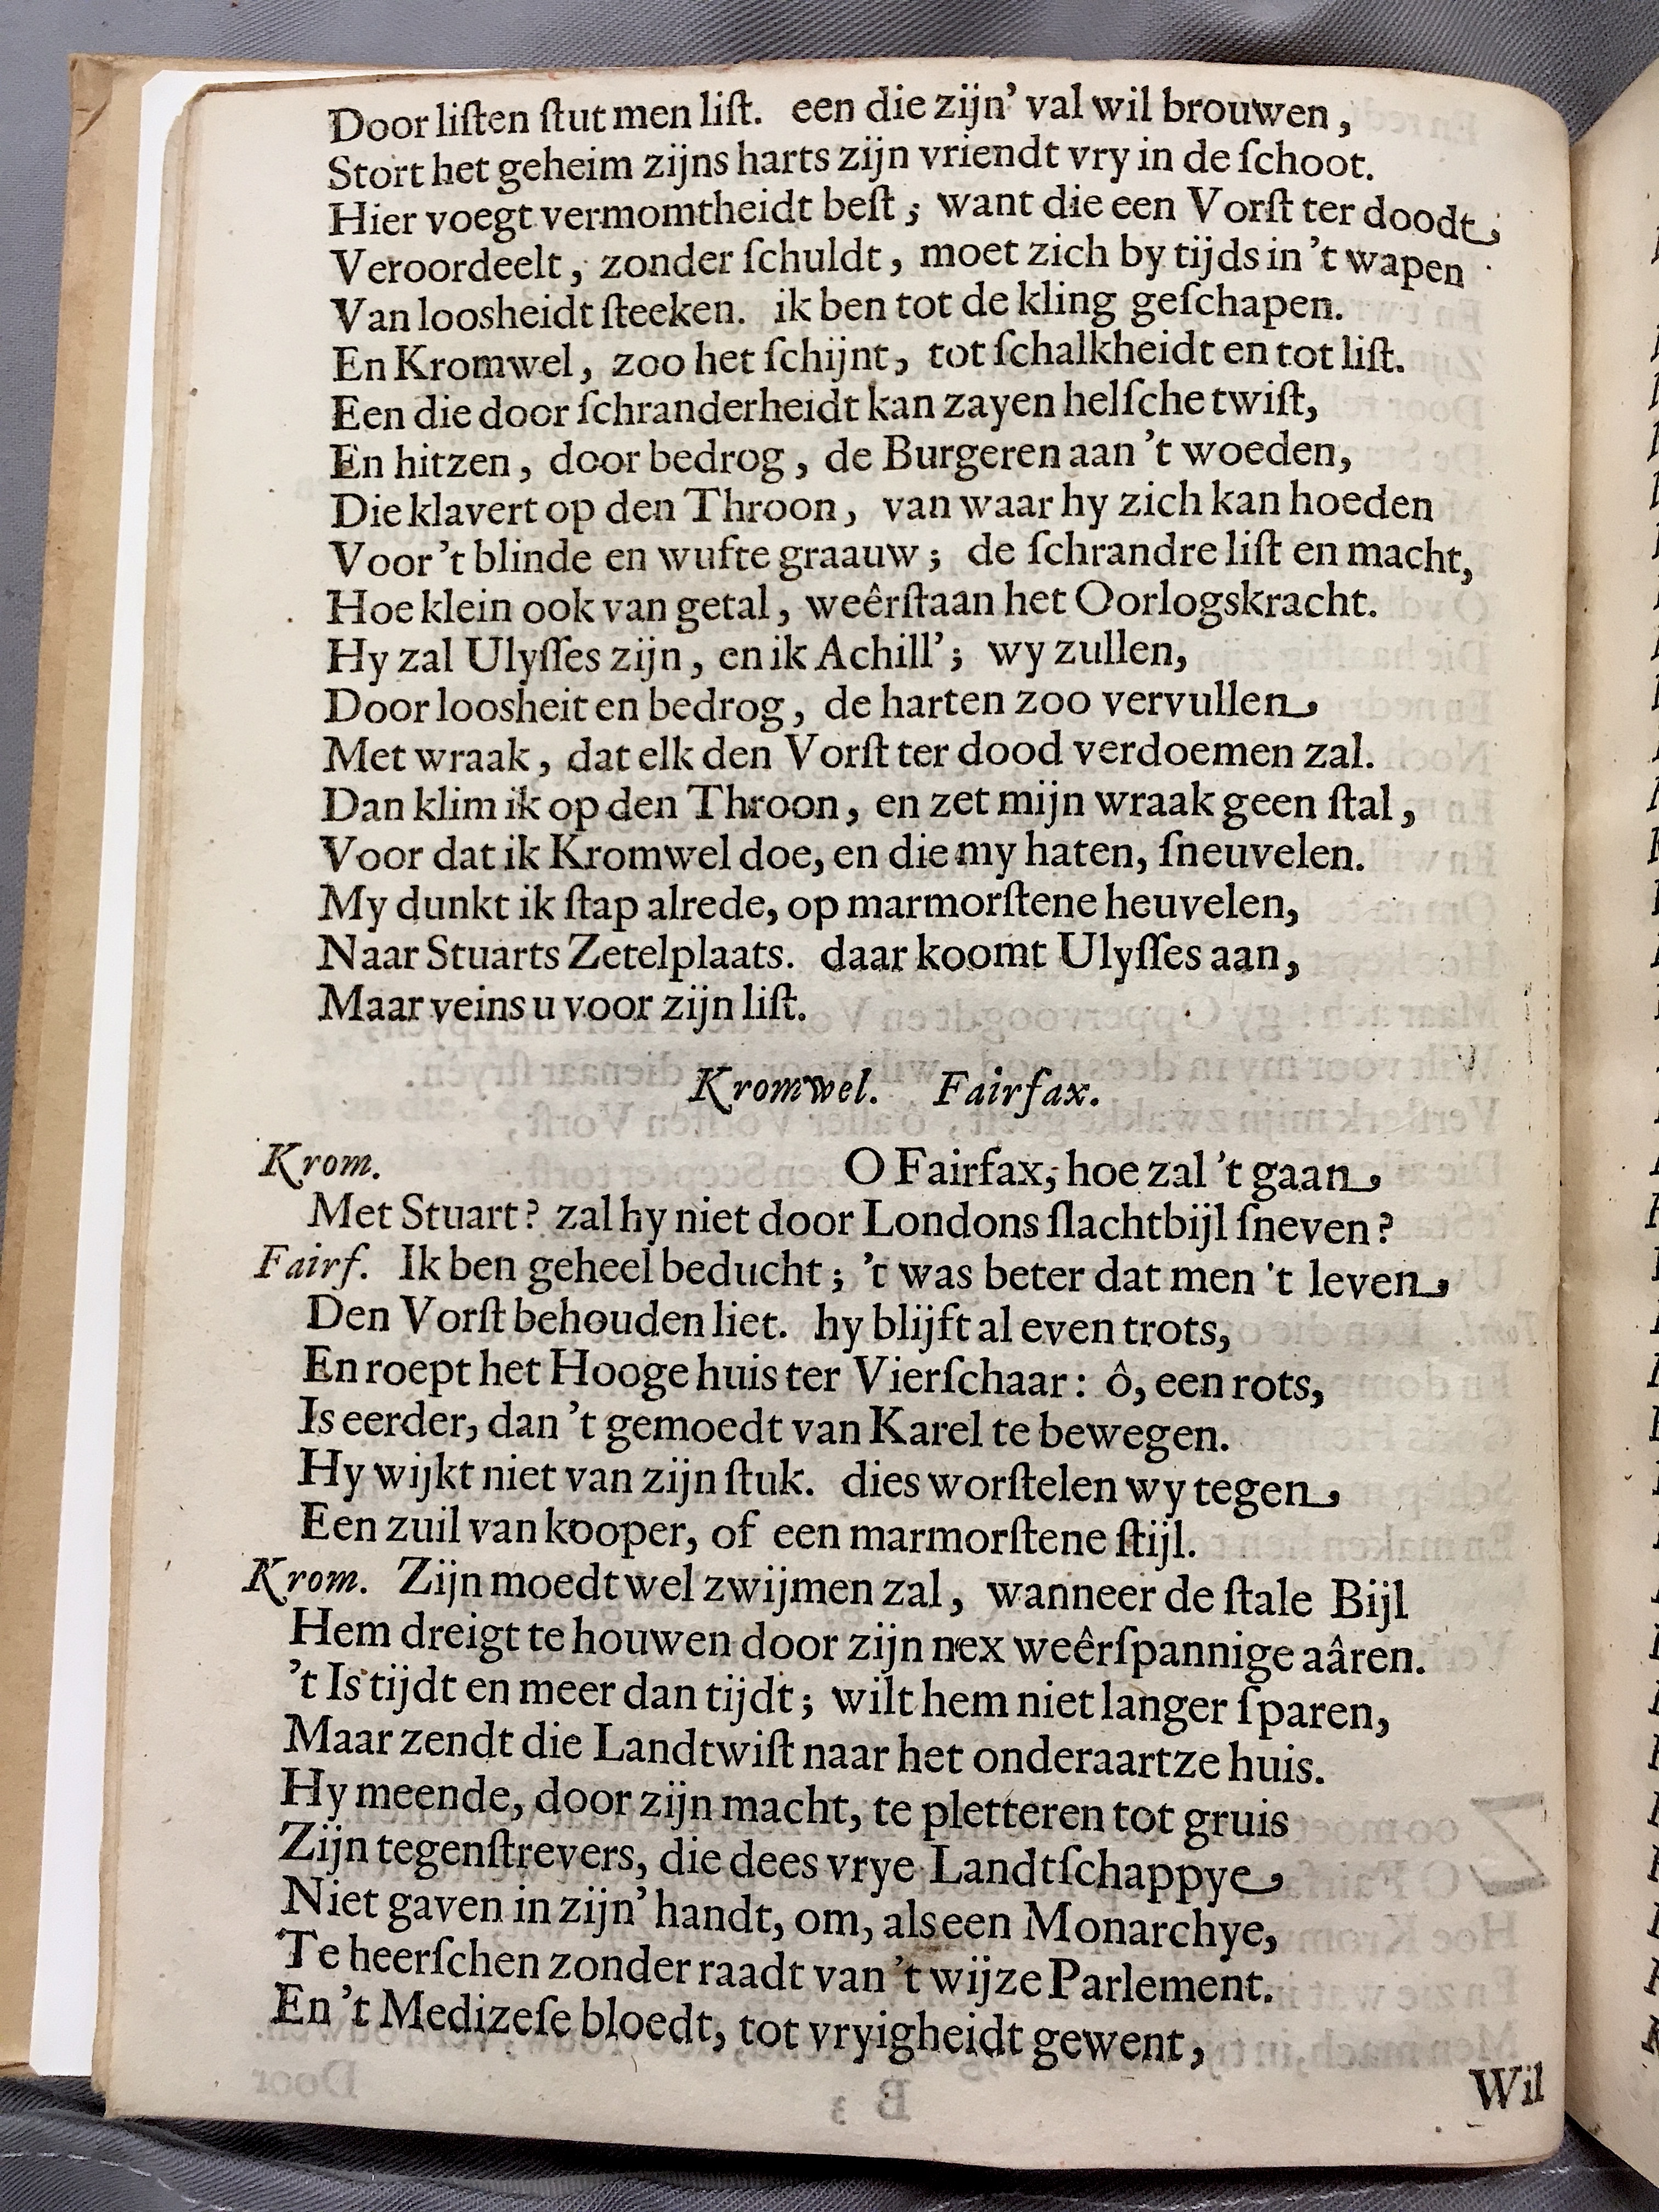 Door liſten ſtut men liſt. een die zijn’ val wil brouwen,
Stort het geheim zijns harts zijn vriendt vry in de ſchoot.
Hier voegt vermomtheidt beſt; want die een Vorſt ter doodt,
Veroordeelt, zonder ſchuldt, moet zich by tijds in ’t wapen
Van loosheidt ſteeken. ik ben tot de kling geſchapen.
En Kromwel, zoo het ſchijnt, tot ſchalkheidt en tot liſt.
Een die door ſchranderheidt kan zayen helſche twiſt,
En hitzen, door bedrog, de Burgeren aan ’t woeden,
Die klavert op den Throon, van waar hy zich kan hoeden
Voor ’t blinde en wufte graauw; de ſchrandre liſt en macht,
Hoe klein ook van getal, weêrſtaan het Oorlogskracht.
Hy zal Ulyſſes zijn, en ik Achill’; wy zullen,
Door loosheit en bedrog, de harten zoo vervullen
Met wraak, dat elk den Vorſt ter dood verdoemen zal.
Dan klim ik op den Throon, en zet mijn wraak geen ſtal,
Voor dat ik Kromwel doe, en die my haten, ſneuvelen.
My dunkt ik ſtap alrede, op marmorſtene heuvelen,
Naar Stuarts Zetelplaats. daar koomt Ulyſſes aan,
Maar veins u voor zijn liſt.
Kromwel. Fairfax.
Krom. O Fairfax, hoe zal ’t gaan
Met Stuart? zal hy niet door Londons ſlachtbijl ſneven?
Fairf. Ik ben geheel beducht; ’t was beter dat men ’t leven
Den Vorſt behouden liet. hy blijft al even trots,
En roept het Hooge huis ter Vierſchaar: ô, een rots,
Is eerder, dan ’t gemoedt van Karel te bewegen.
Hy wijkt niet van zijn ſtuk. dies worſtelen wy tegen
Een zuil van kooper, of een marmorſtene ſtijl.
Krom. Zijn moedt wel zwijmen zal, wanneer de ſtale Bijl
Hem dreigt te houwen door zijn nex weêrſpannige aâren.
’t Is tijdt en meer dan tijdt; wilt hem niet langer ſparen,
Maar zendt die Landtwiſt naar het onderaartze huis.
Hy meende, door zijn macht, te pletteren tot gruis
Zijn tegenſtrevers, die dees vrye Landtſchappye
Niet gaven in zijn’ handt, om, als een Monarchye,
Te heerſchen zonder raadt van ’t wijze Parlement.
En ’t Medizeſe bloedt, tot vryigheidt gewent,
Wil